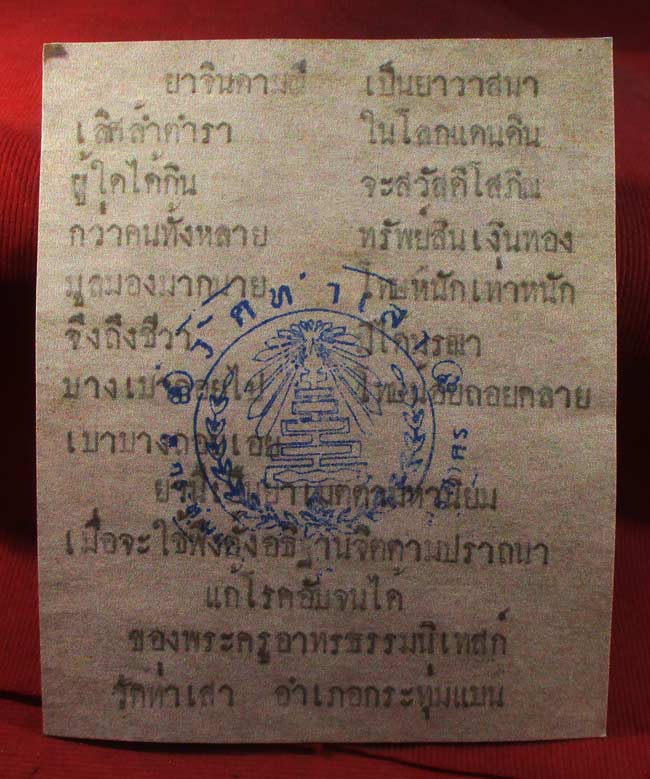 ยาจินดามณี เป็นยาวาสนา
เลิศล้ำตำรา ในโลกแดนดิน
ผู้ใดได้กิน จะสวัสดิโสภิณ
กว่าคนทั้งหลาย ทรัพย์สินเงินทอง
มูลมองมากมาย โทษหนักเท่าหนัก
จึงถึงชีวา
บางเบา โทษน้อยถอยคลาย
เบาบาง
ยานี้เป็นยาเมตตามหานิยม
เมื่อจะใช้พึงตั้งอธิฐานจิตตามปราถนา
แก้โรคอับจนได้
ของพระครูอาทรธรรมนิเทสก์
วัดท่าเสา อำเภอกระทุ่มแบน
วัดท่าเสา